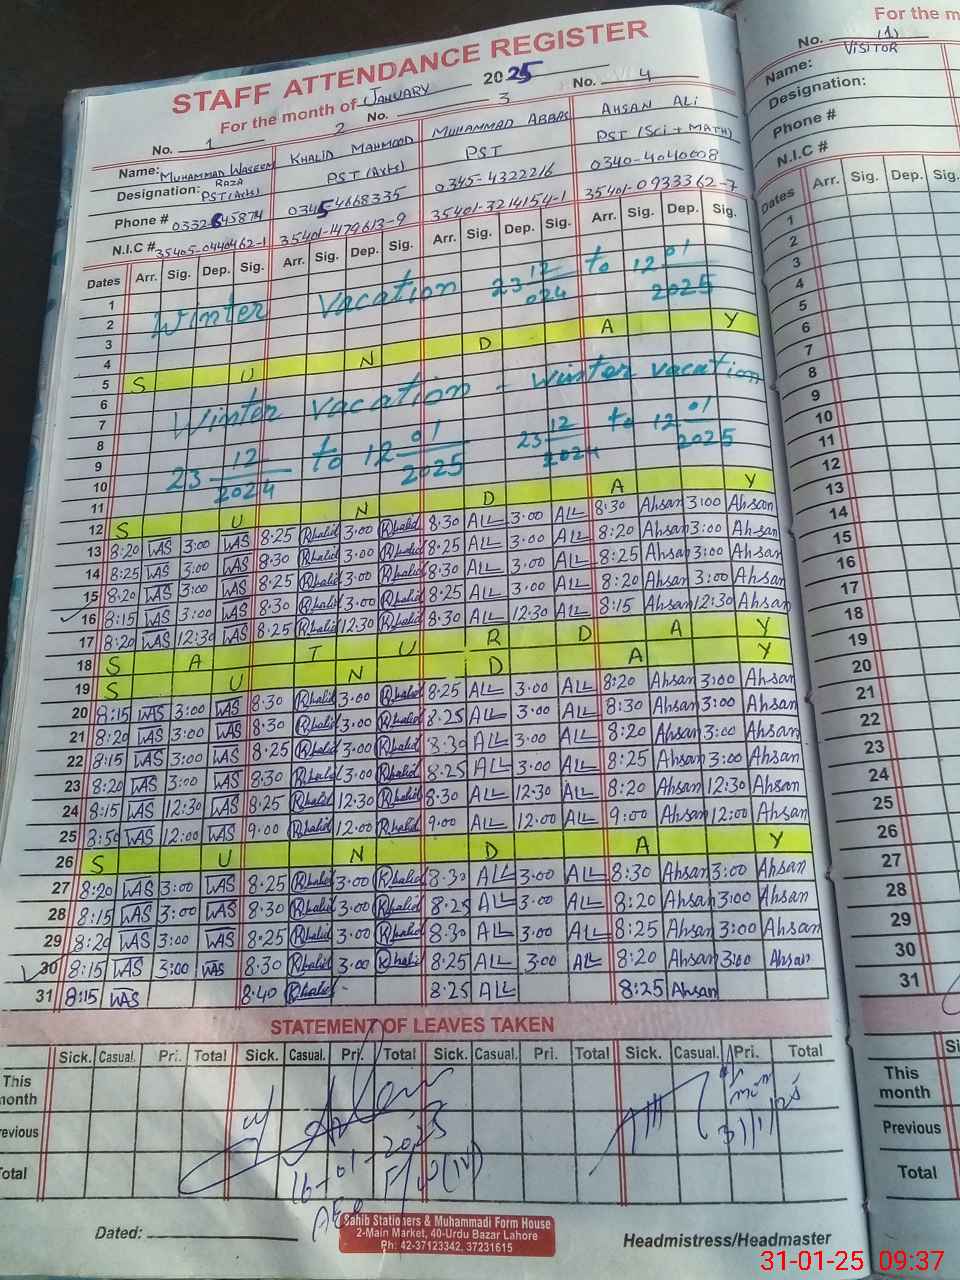 STAFF ATTENDANCE REGISTER
For the month of JANUARY 2025
No. 1 2 No. 3 No. 4
Name: MUHAMMAD WASEEM RAZA KHALID MAHMOOD MUHAMMAD ABBAS AHSAN ALI
Designation: PST (Arts) PST (Arts) PST PST (Sci + MATH)
Phone # 0332 645874 0345 4668335 0345-4322216 0340-4040008
N.I.C # 35405-0440462-1 35401-1479613-9 35401-3214154-1 35401-0933362-7
Dates Arr. Sig. Dep. Sig. Arr. Sig. Dep. Sig. Arr. Sig. Dep. Sig. Arr. Sig. Dep. Sig.
1
2 Winter Vacation 23 12 024 to 12 01 2025
3
4
5 S U N D A Y
6
7 Winter vacation - winter vacation
8
9 23 12 2024 to 12 01 2025 23 12 2024 to 12 01 2025
10
11
12 S U N D A Y
13 8:20 WAS 3:00 WAS 8:25 Khalid 3:00 Khalid 8:30 ALL 3:00 ALL 8:30 Ahsan 3:00 Ahsan
14 8:25 WAS 3:00 WAS 8:30 Khalid 3:00 Khalid 8:25 ALL 3:00 ALL 8:20 Ahsan 3:00 Ahsan
15 8:20 WAS 3:00 WAS 8:25 Khalid 3:00 Khalid 8:30 ALL 3:00 ALL 8:25 Ahsan 3:00 Ahsan
16 8:15 WAS 3:00 WAS 8:30 Khalid 3:00 Khalid 8:25 ALL 3:00 ALL 8:20 Ahsan 3:00 Ahsan
17 8:20 WAS 12:30 WAS 8:25 Khalid 12:30 Khalid 8:30 ALL 12:30 ALL 8:15 Ahsan 12:30 Ahsan
18 S A T U R D A Y
19 S U N D A Y
20 8:15 WAS 3:00 WAS 8:30 Khalid 3:00 Khalid 8:25 ALL 3:00 ALL 8:20 Ahsan 3:00 Ahsan
21 8:20 WAS 3:00 WAS 8:30 Khalid 3:00 Khalid 8:25 ALL 3:00 ALL 8:30 Ahsan 3:00 Ahsan
22 8:15 WAS 3:00 WAS 8:25 Khalid 3:00 Khalid 8:30 ALL 3:00 ALL 8:20 Ahsan 3:00 Ahsan
23 8:20 WAS 3:00 WAS 8:30 Khalid 3:00 Khalid 8:25 ALL 3:00 ALL 8:25 Ahsan 3:00 Ahsan
24 8:15 WAS 12:30 WAS 8:25 Khalid 12:30 Khalid 8:30 ALL 12:30 ALL 8:20 Ahsan 12:30 Ahsan
25 8:50 WAS 12:00 WAS 9:00 Khalid 12:00 Khalid 9:00 ALL 12:00 ALL 9:00 Ahsan 12:00 Ahsan
26 S U N D A Y
27 8:20 WAS 3:00 WAS 8:25 Khalid 3:00 Khalid 8:30 ALL 3:00 ALL 8:30 Ahsan 3:00 Ahsan
28 8:15 WAS 3:00 WAS 8:30 Khalid 3:00 Khalid 8:25 ALL 3:00 ALL 8:20 Ahsan 3:00 Ahsan
29 8:20 WAS 3:00 WAS 8:25 Khalid 3:00 Khalid 8:30 ALL 3:00 ALL 8:25 Ahsan 3:00 Ahsan
30 8:15 WAS 3:00 WAS 8:30 Khalid 3:00 Khalid 8:25 ALL 3:00 ALL 8:20 Ahsan 3:00 Ahsan
31 8:15 WAS 8:40 Khalid 8:25 ALL 8:25 Ahsan
STATEMENT OF LEAVES TAKEN
Sick. Casual. Pri. Total Sick. Casual. Pri. Total Sick. Casual. Pri. Total Sick. Casual. Pri. Total
This month
Previous
Total
16-01-2025
31/1/25
Dated:
Sahib Stationers & Muhammadi Form House
2-Main Market, 40-Urdu Bazar Lahore
Ph: 42-37123342, 37231615
Headmistress/Headmaster
For the m
No. (1)
VISITOR
Name:
Designation:
Phone #
N.I.C #
Dates Arr. Sig. Dep. Sig.
1
2
3
4
5
6
7
8
9
10
11
12
13
14
15
16
17
18
19
20
21
22
23
24
25
26
27
28
29
30
31
Si
This month
Previous
Total
31-01-25 09:37